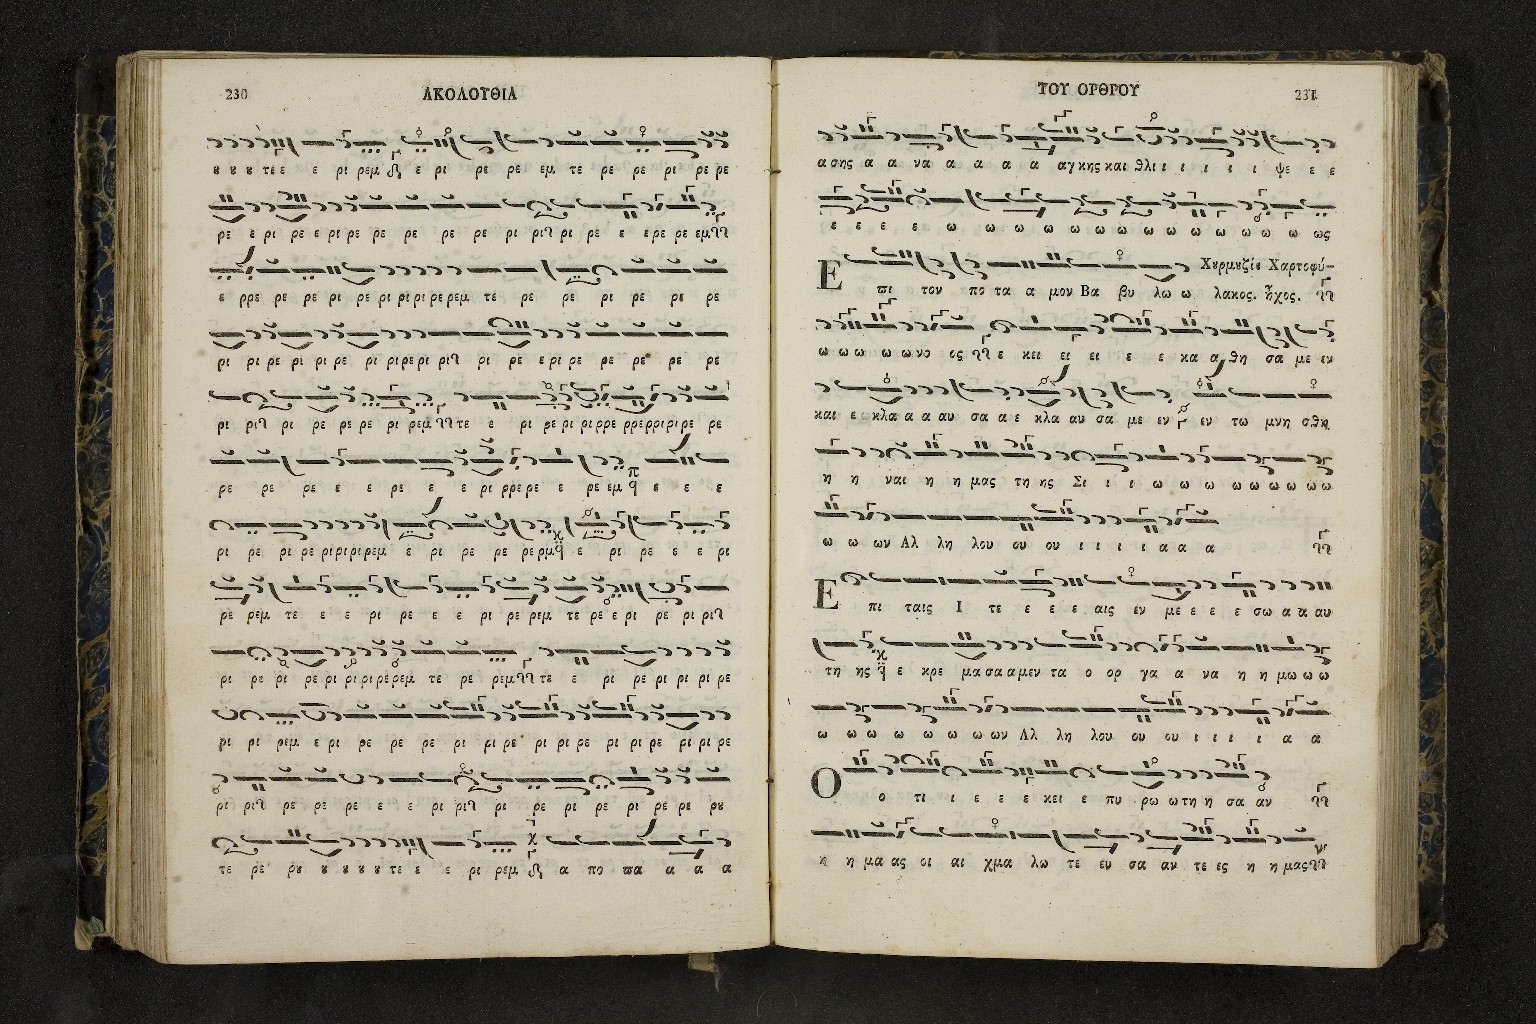 230 ΑΚΟΛΟΥΘΙΑ
ȣ ȣ ȣ τε ε ε ρι ρεμ ε ρι ρε ρε εμ τε ρε ρε ρι ρε ρε
ρε ε ρι ρε ε ρι ρε ρε ρε ρε ρε ρι ρι ρι ρε ε ε ρε ρε εμ
ε ρρε ρε ρε ρι ρε ρι ρι ρι ρε ρεμ τε ρε ρε ρι ρε ρε ρε
ρι ρι ρε ρι ρι ρε ρι ρι ρε ρι ρι ρι ρε ε ρι ρε ρε ρε ρε ρε
ρι ρι ρι ρε ρε ρε ρι ρεμ τε ε ρι ρε ρι ρι ρρε ρρε ρρι ρι ρε ρε
ρε ρε ρε ε ε ρε ε ε ρι ρρε ρε ε ρε εμ ε ε ε
ρι ρε ρι ρε ρι ρι ρι ρεμ ε ρι ρε ρε ρε ρμ ε ρι ρε ε ε ρι
ρε ρεμ τε ε ε ρι ρε ε ε ρι ρε ρεμ τε ρε ε ρι ρε ρι ρι
ρι ρε ρι ρε ρι ρι ρι ρε ρεμ τε ρε ρεμ τε ε ρι ρε ρι ρι ρι ρε
ρι ρι ρεμ ε ρι ρε ρε ρε ρι ρι ρε ρι ρι ρε ρι ρι ρε ρι ρι ρε
ρι ρι ρε ρε ρε ε ε ρι ρι ρι ρε ρι ρε ρι ρε ρε ρȣ
τε ρε ρȣ ȣ ȣ ȣ ȣ τε ε ε ρι ρεμ α πο πα α α α
ΤΟΥ ΟΡΘΡΟΥ 231
α σης α α να α α α α αγ κης και θλι ι ι ι ι ι ψε ε ε
ε ε ε ε ω ω ω ω ω ω ω ω ω ω ω ω ω ως
Ε πι τον πο τα α μον Βα βυ λω ω Χȣρμȣζίȣ Χαρτοφύ-
λακος. ἦχος.
ω ω ω ω ω νο ος ε κει ει ει ε ε κα α θη σα με εν
και ε κλα α α αυ σα α ε κλα αυ σα με εν εν τω μνη σθη
η η ναι η η μας τη ης Σι ι ι ω ω ω ω ω ω ω ω
ω ω ων Αλ λη λου ου ου ι ι ι ι α α α
Ε πι ταις Ι τε ε ε ε αις εν με ε ε ε σω α α αυ
τη ης ε κρε μα σα α μεν τα ο ορ γα α να η η μω ω ω
ω ω ω ω ω ω ω ων Αλ λη λου ου ου ι ι ι ι α α
Ο ο τι ι ε ε ε κει ε πυ ρω ω τη η σα αν
η η μα ας οι αι χμα λω τε εν σα αν τε ες η η μας